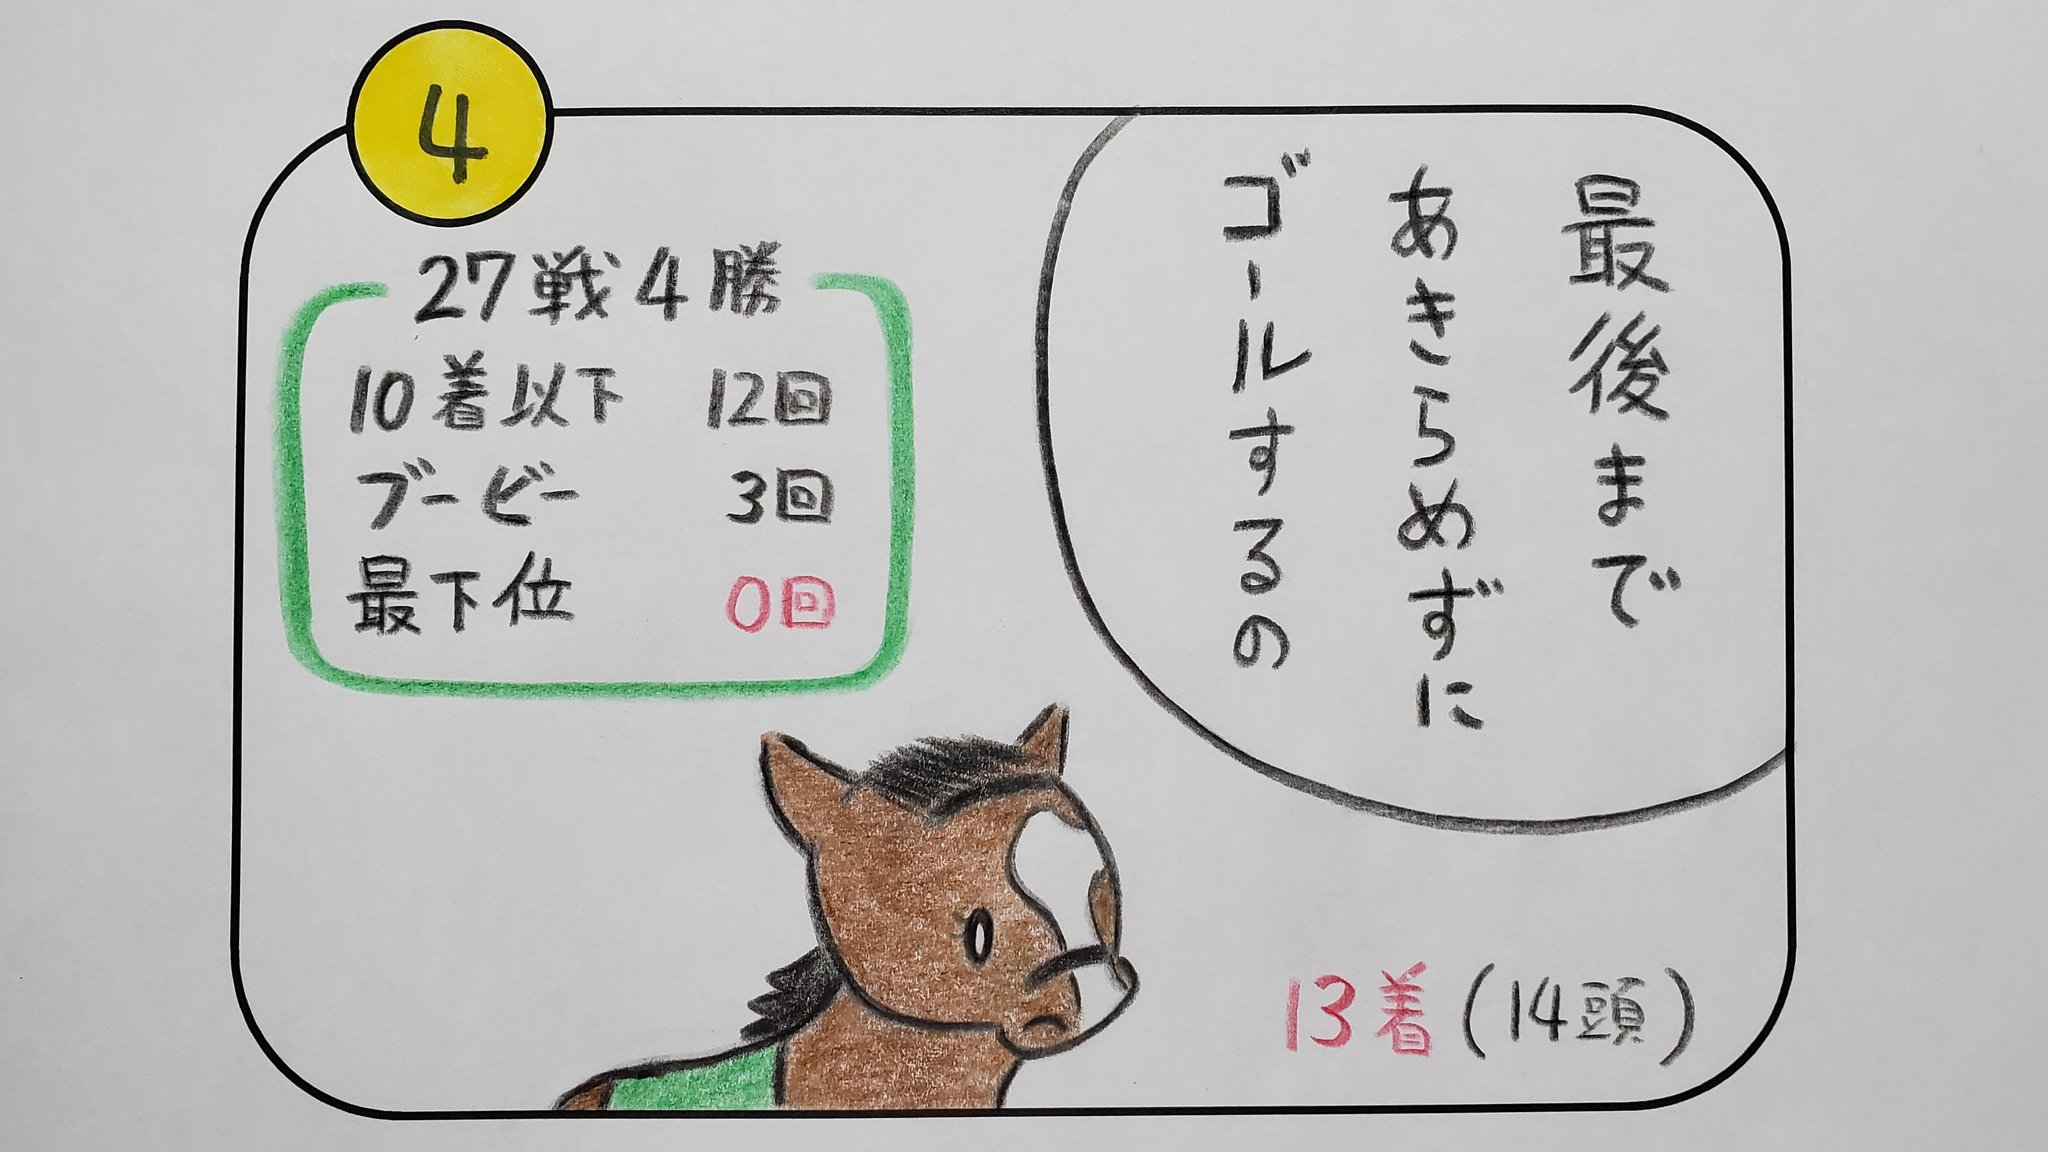 4
最後まで
あきらめずに
ゴールするの
27戦4勝
10着以下 12回
ブービー 3回
最下位 0回
13着(14頭)